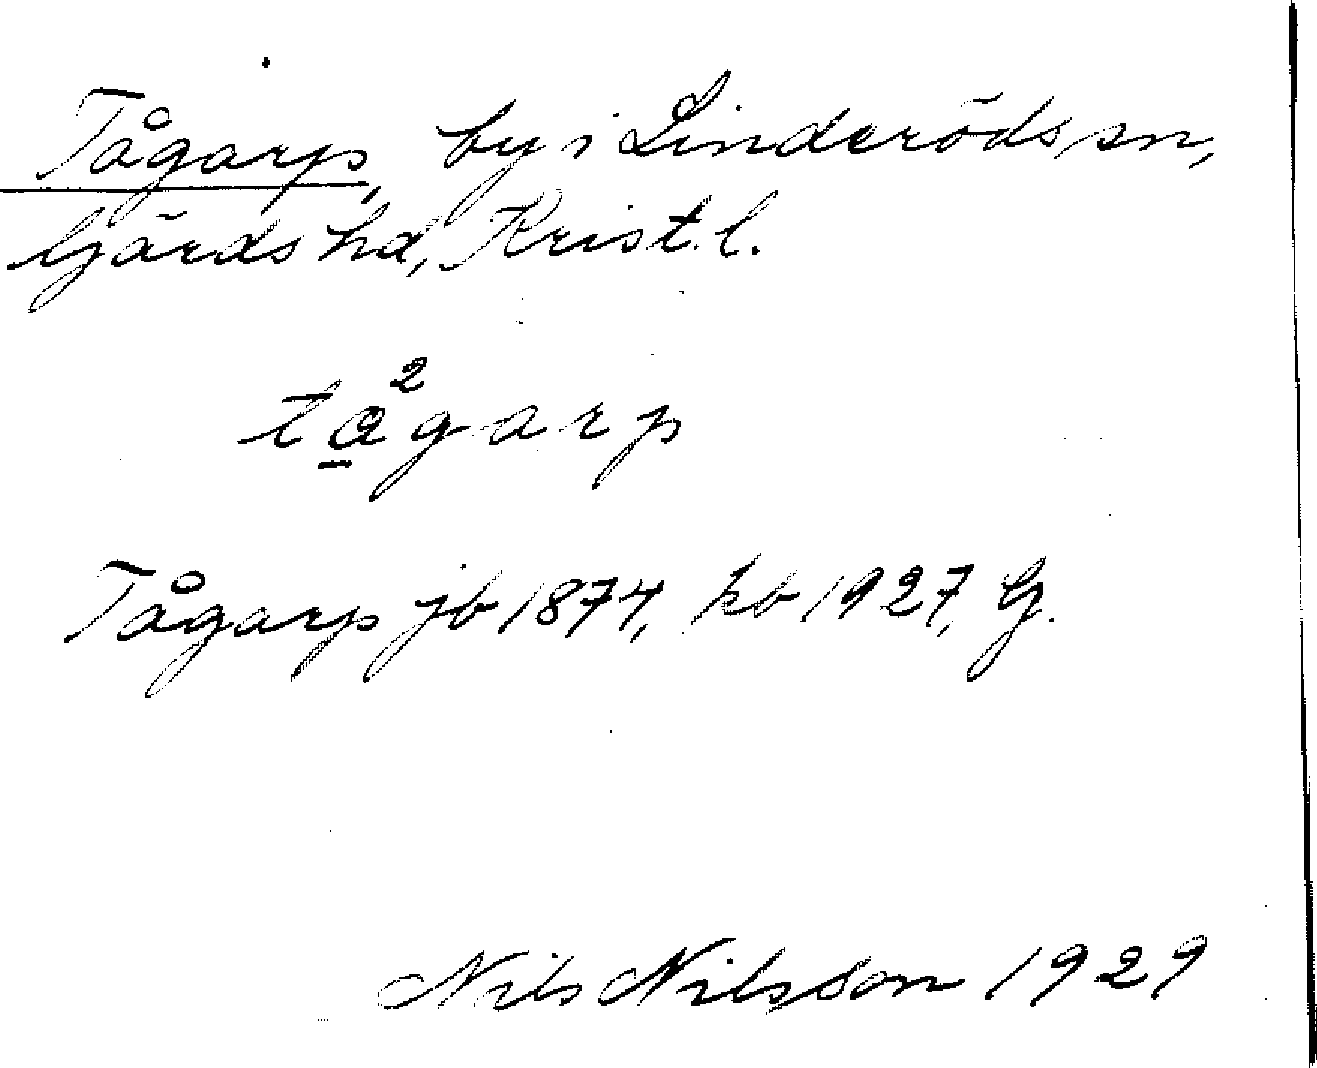 Tågarp, by i Linderöds sn,
Gärds hd, Krist. l.
tå²garp
Tågarp jb 1874, kb 1927, G.
Nils Nilsson 1929